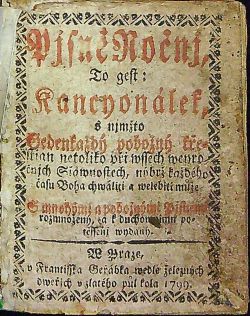 Pjsně Ročnj,
To gest:
Kancyonálek,
s njmžto
Gedenkaždý pobožný kře-
stian netoliko při wssech weyro-
čnjch Slawnostech, nýbrž každého
času Boha chwáliti a welebiti může
S mnohými a pobožnými Pjsněmi
rozmnožený, a k duchownjmu po-
těssenj wydaný.
W Praze,
v Frantisska Geřábka wedle železných
dweřjch v zlatého půl kola 1799.